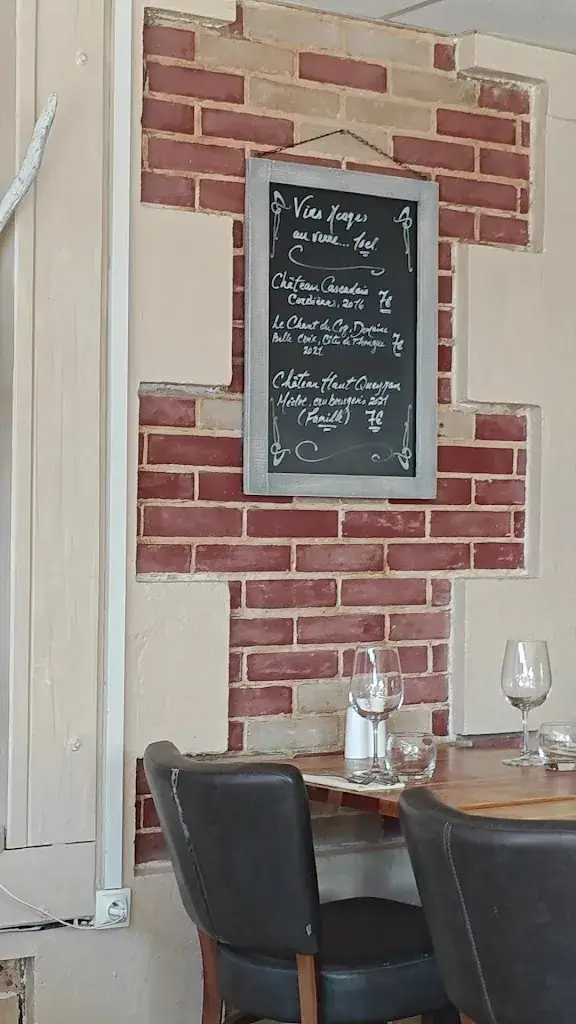 Vins Rouges
au verre... 10cl
Château Cascadais
Corbières, 2016 7€
Le Chant du Coq, Domaine
Belle Croix, Côtes de Thongue 7€
2021
Château Haut Queyran
Médoc, cru bourgeois 2021
(Famille) 7€